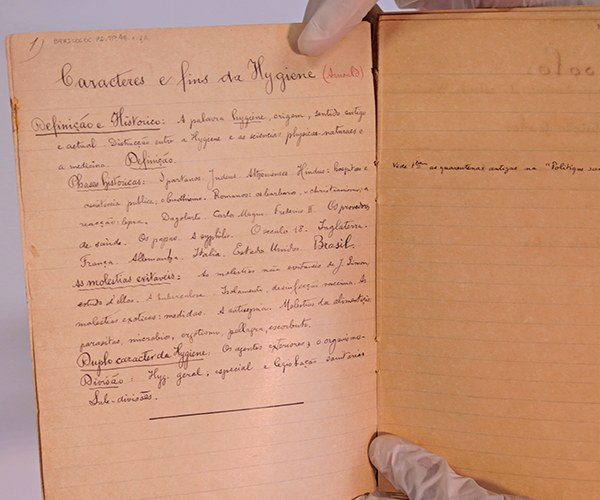 1)
Caracteres e fins da Hygiene (Arnould)
Definição e Historico: A palavra hygiene, origem, sentido antigo
e actual. Distincção entre a Hygiene e as sciencias physicas naturaes e
a medicina. Definição.
Phases historicas: Spartanos. Judeus. Athenienses. Hindus: hospitaes e
assistencia publica; o budhismo. Romanos: os barbaros, o christianismo; a
reacção: lepra. Dagoberto. Carlo Magno. Frederico II. Os provedores
de saude. Os papas. A syphilis. O seculo 18. Inglaterra.
França. Allemanha. Italia. Estados Unidos. Brasil.
As molestias evitaveis: As molestias não evitaveis de J. Simon,
estudo d'ellas. A tuberculose. Isolamento, desinfecção, vaccinas. As
molestias exoticas: medidas. A antisepsia. Molestias da alimentação
parasitas, microbio, ergotismo, pellagra, escorbuto.
Duplo caracter da Hygiene: Os agentes exteriores; o organismo.
Divisão: Hyg. geral; especial e legislação sanitaria
Sub-divisões.
Vide as quarentenas antigas na "Politique